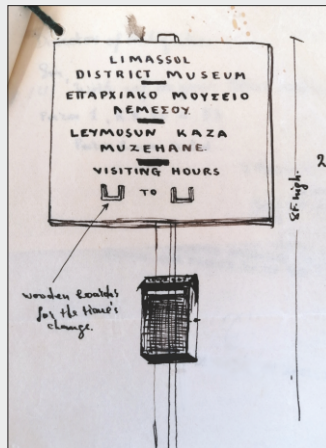 LIMASSOL
DISTRICT MUSEUM
ΕΠΑΡΧΙΑΚΟ ΜΟΥΣΕΙΟ
ΛΕΜΕΣΟΥ
LEYMOSUN KAZA
MUZEHANE.
VISITING HOURS
TO
wooden boards
for the Hours
change.
8F. high.
2